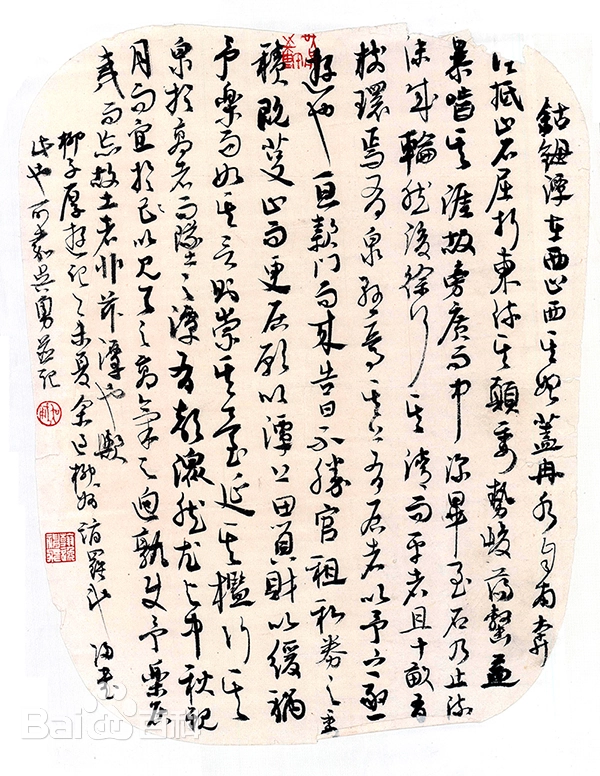 鈷鉧潭在西山西其始蓋冉水自南奔
注抵山石屈折東流其顛委勢峻蕩擊益
暴嚙其涯故旁廣而中深畢至石乃止流
沫成輪然後徐行其清而平者且十畝有
樹環焉有泉懸焉其上有居者以予之亟
遊也一旦款門而來告曰不勝官租私券之委
積既芟山而更居願以潭上田貿財以緩禍
予樂而如其言則崇其臺延其檻行其
泉於高者而墜之潭有聲潀然尤與中秋觀
月而宜於以見天之高氣之迥孰使予樂居
夷而忘故土者非茲潭也歟
柳子厚遊記 余 柳州
也 吳勇 記
Baidu百科